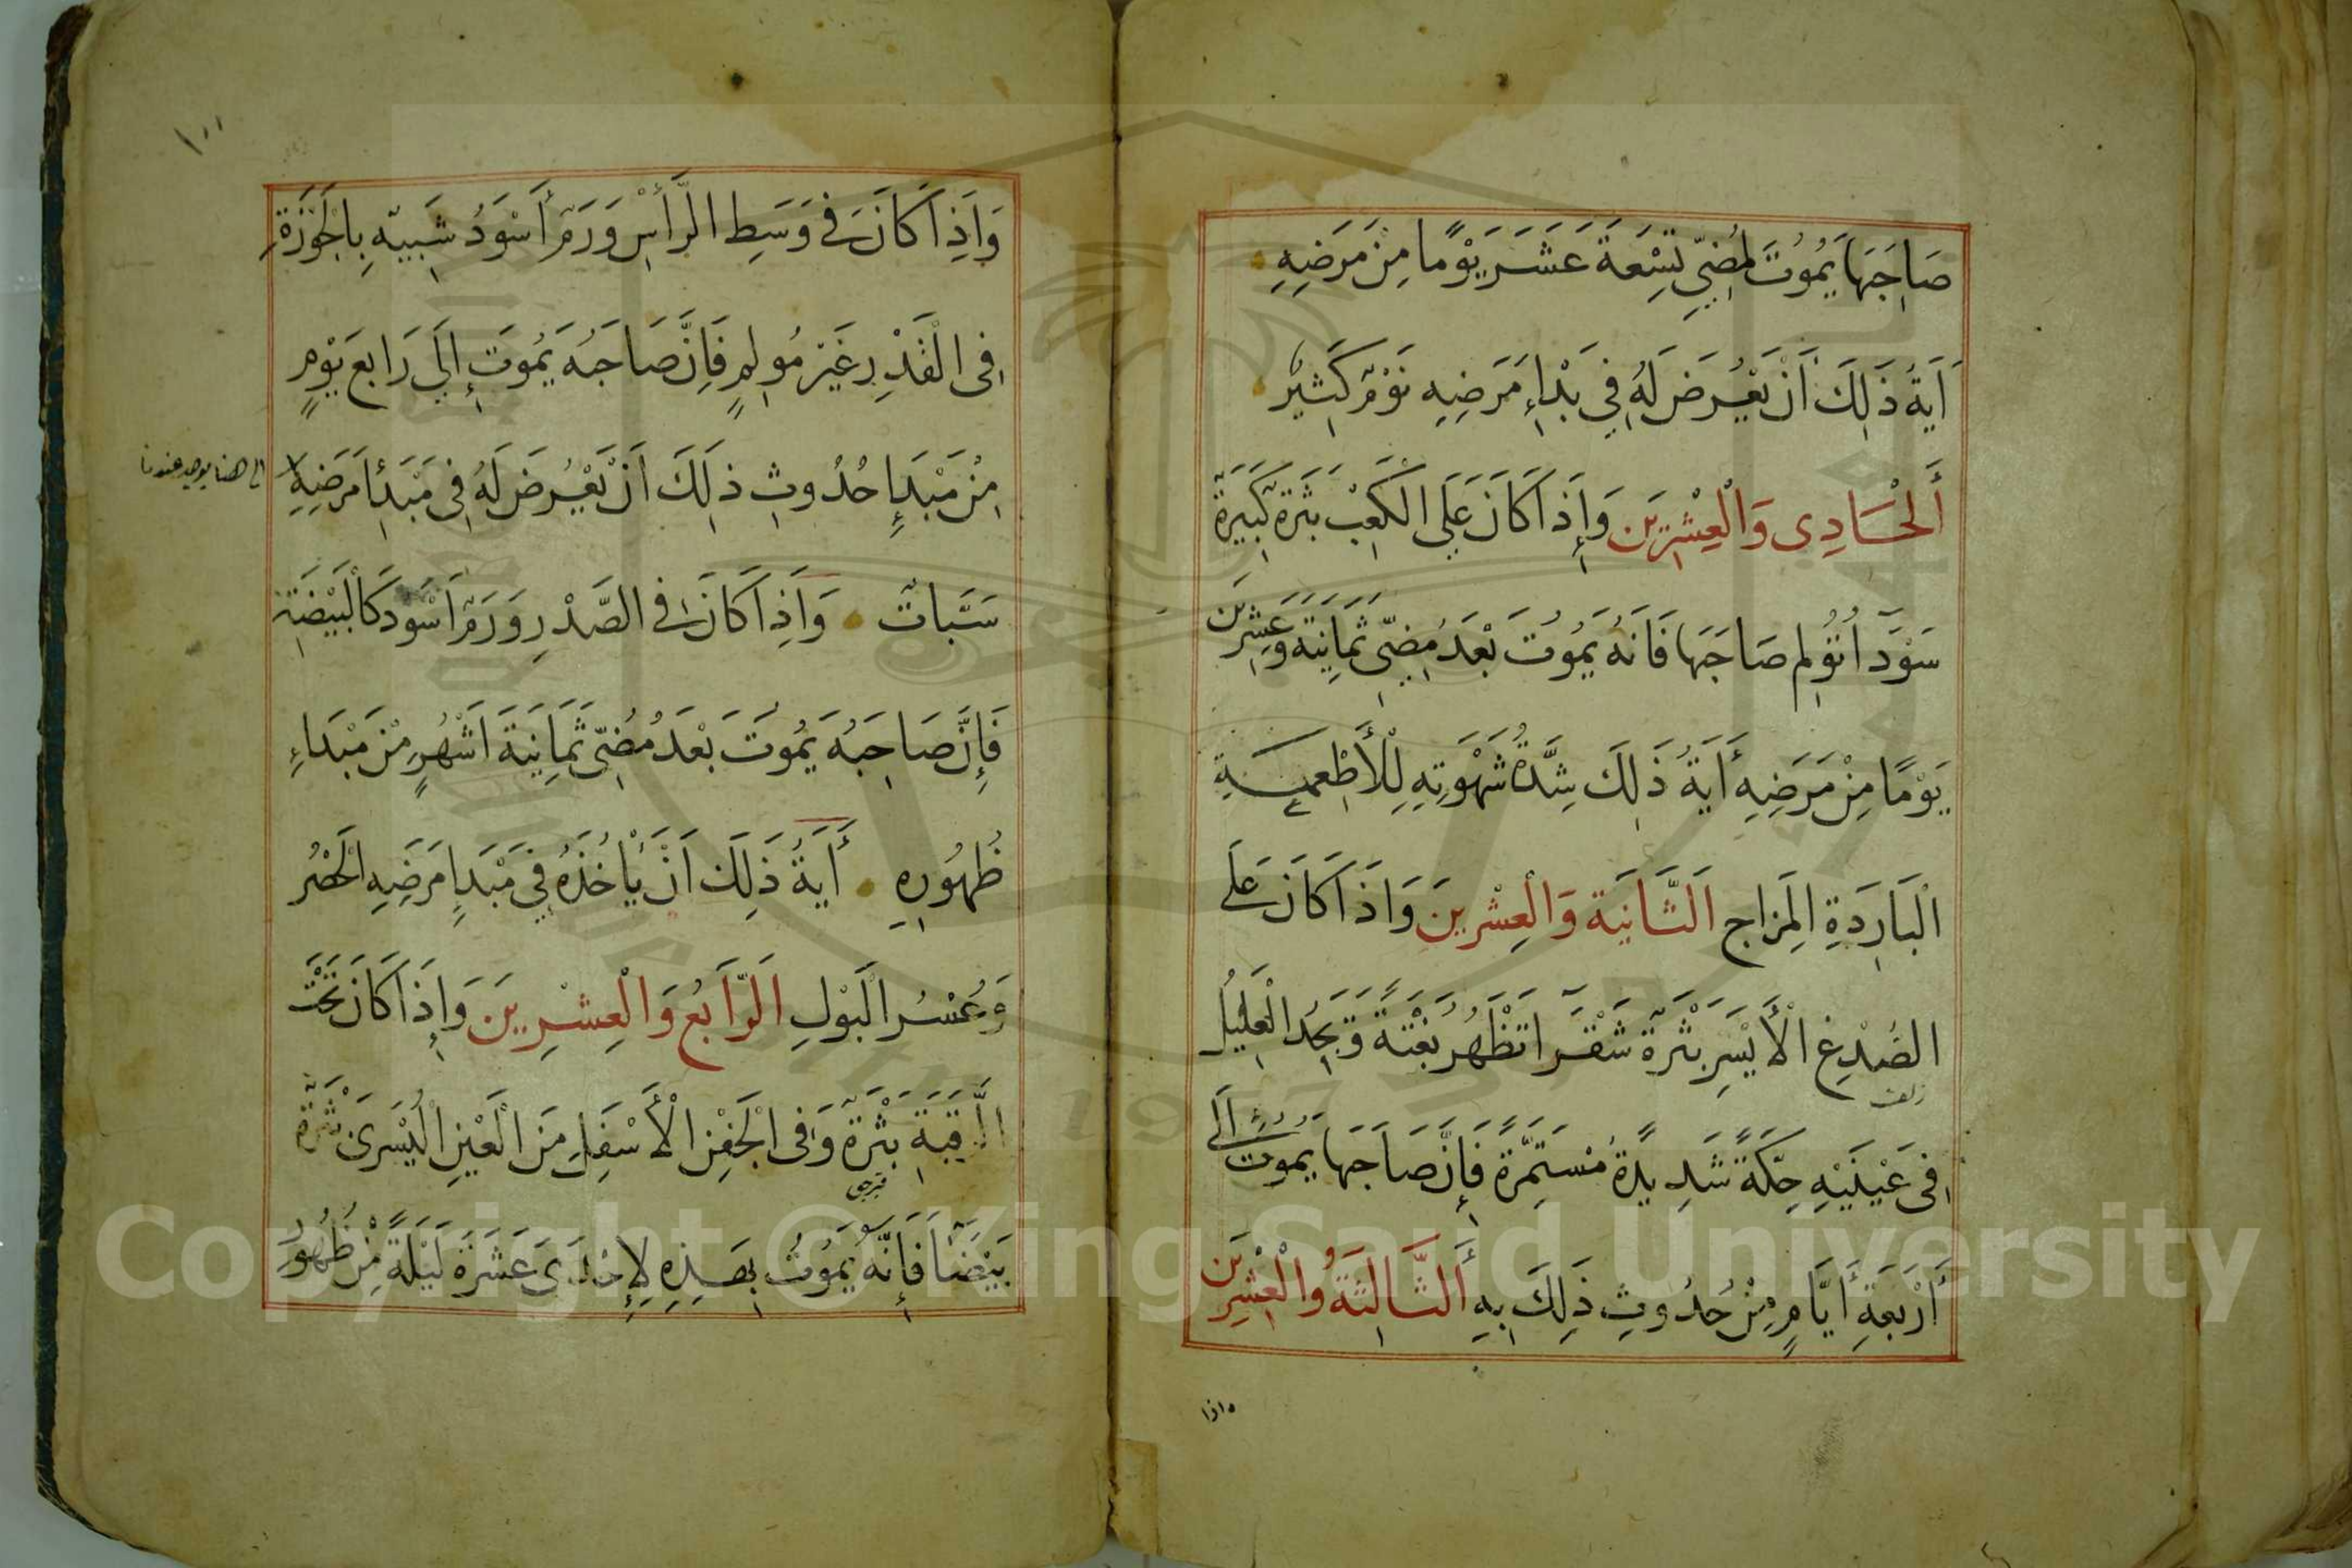 صَاحِبَهَا يَمُوتُ لِمُضِيِّ تِسْعَةَ عَشَرَ يَوْمًا مِنْ مَرَضِهِ
أَيَةُ ذَلِكَ أَنْ يَعْرِضَ لَهُ فِي بَدْاءِ مَرَضِهِ نَوْمٌ كَثِيرٌ
أَلْحَادِى وَالْعِشْرِينَ وَإِذَا كَانَ عَلَى الْكَعْبِ بَثَرَةٌ كَبِيرَةٌ
سَوْدَآ تُؤْلِم صَاحِبَهَا فَانَهُ يَمُوتُ بَعْدَ مُضِيِّ ثَمَانِيَةَ وَعِشْرِينَ
يَوْمًا مِنْ مَرَضِهِ أَيَةُ ذَلِكَ شِدَّةُ شَهْوَتِهِ لِلْأَطْعِمَةِ
الْبَارِدَةِ الْمِزَاجِ الثَّانِيَة وَالْعِشْرِينَ وَاذَا كَانَ عَلَى
الصُدْغِ الْأَيْسَرِ بَثْرَةٌ شَقْرَا تَظْهَرُ بَغْتَةً وَيَجِدُ الْعَلِيلُ
فِى عَيْنَيْهِ حِكَّةً شَدِيدَةً مُسْتَمِرَّةً فَإِنَّ صَاحِبَهَا يَمُوتُ الَى
أَرْبَعَةِ أَيَّامٍ مِنْ حُدُوثِ ذَلِكَ بِهِ أَلثَّالِثَةُ وَالْعِشْرِينَ
واذا
١٠١
وَاذِا كَانَ فى وَسَطِ الرَّأْسِ وَرَمٌ أَسْوَدُ شَبِيهٌ بِالْجَوْزَةِ
فِى الْقَدْرِ غَيْرَ مُولِمٍ فَاِنَّ صَاحِبَهُ يَمُوتُ إِلَى رَابِعَ يَوْمٍ
مِنْ مَبْدَإِ حُدُوثِ ذلِكَ اَنْ يَعْرِضَ لَهُ فِى مَبْدَئِ مَرَضِهِ
الى هنا يوجد عندنا
سَبَّاتٌ وَاذِا كَانَ فى الصَّدْرِ وَرَمٌ اَسْوَدَ كَالْبَيْضَةِ
فَإِنَّ صَاحِبَهُ يَمُوتُ بَعْدَ مُضِيِّ ثَمَانِيَةَ اَشْهُرٍ مِنْ مَبْدَاءِ
ظُهُورِهِ أَيَةُ ذَلِكَ اَنْ يَأْخُذَهُ فِي مَبْدَإِ مَرَضِهِ الْحُصْرُ
وَعُسْرُ الْبَوْلِ الرَّابِعُ وَالْعِشْرِينَ وَإِذَا كَانَ تَحْتَ
الرَّقَبَةِ بَثْرَةٌ وَفِى الْجَفْنِ الْأَسْفَلِ مِنَ الْعَيْنِ الْيُسْرَى بَثْرَةٌ
بَيْضَآ فَإِنَّهُ يَمُوتُ بِهَذِهِ لِإِحْدَى عَشَرَةَ لَيْلَةً مِنْ ظُهُورِ